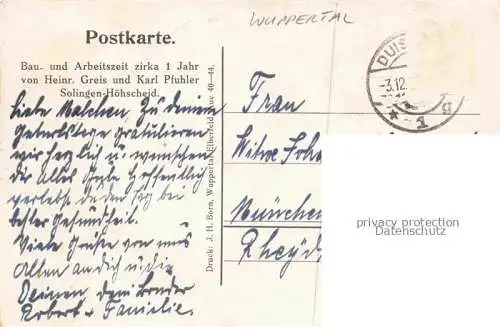 WUPPERTAL
Postkarte.
Bau- und Arbeitszeit zirka 1 Jahr
von Heinr. Greis und Karl Pfuhler
Solingen-Höhscheid.
Liebe Malchen. Zu deinem
Geburtstage gratulieren
wir herzlich u. wünschen
dir alles Gute Hoffentlich
verlebst du den Tag bei
bester Gesundheit.
Viele Grüße von uns
Allen an dich u. die
Deinen, dein Bruder
Robert + Familie.
Druck: J. H. Born, Wuppertal-Elberfeld, Aue 40-44.
DUIS
-3.12.
* 1 g
Frau
Witwe Joh
München
Rheyd
privacy protection
Datenschutz